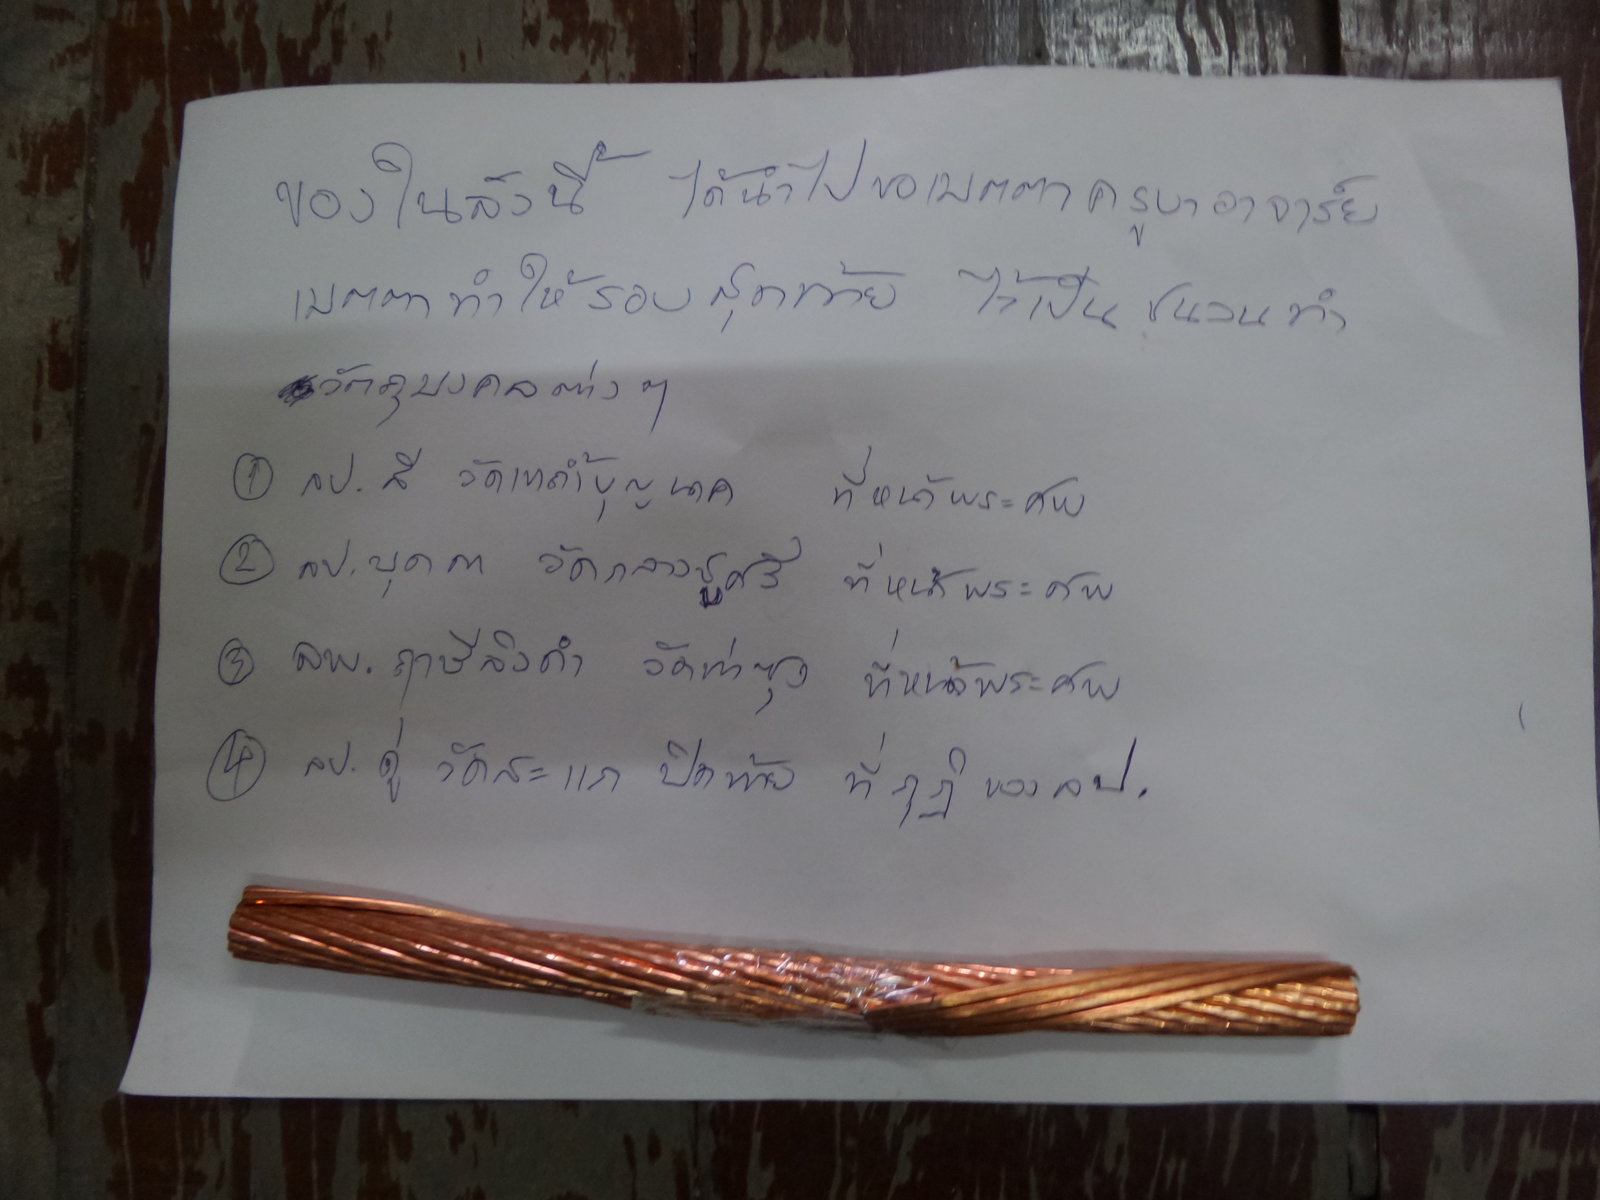 ของในลังนี้ ได้นำไปขอเมตตาครูบาอาจารย์
เมตตาทำให้รอบสุดท้าย ไว้เป็นชนวนทำ
วัตถุมงคลต่างๆ
① ลป. สี วัดเขาถ้ำบุญนาค ที่หน้าพระศพ
② ลป. บุดดา วัดกลางชูศรี ที่หน้าพระศพ
③ ลพ. ฤาษีลิงดำ วัดท่าซุง ที่หน้าพระศพ
④ ลป. ดู่ วัดสะแก ปิดท้าย ที่กุฏิของลป.